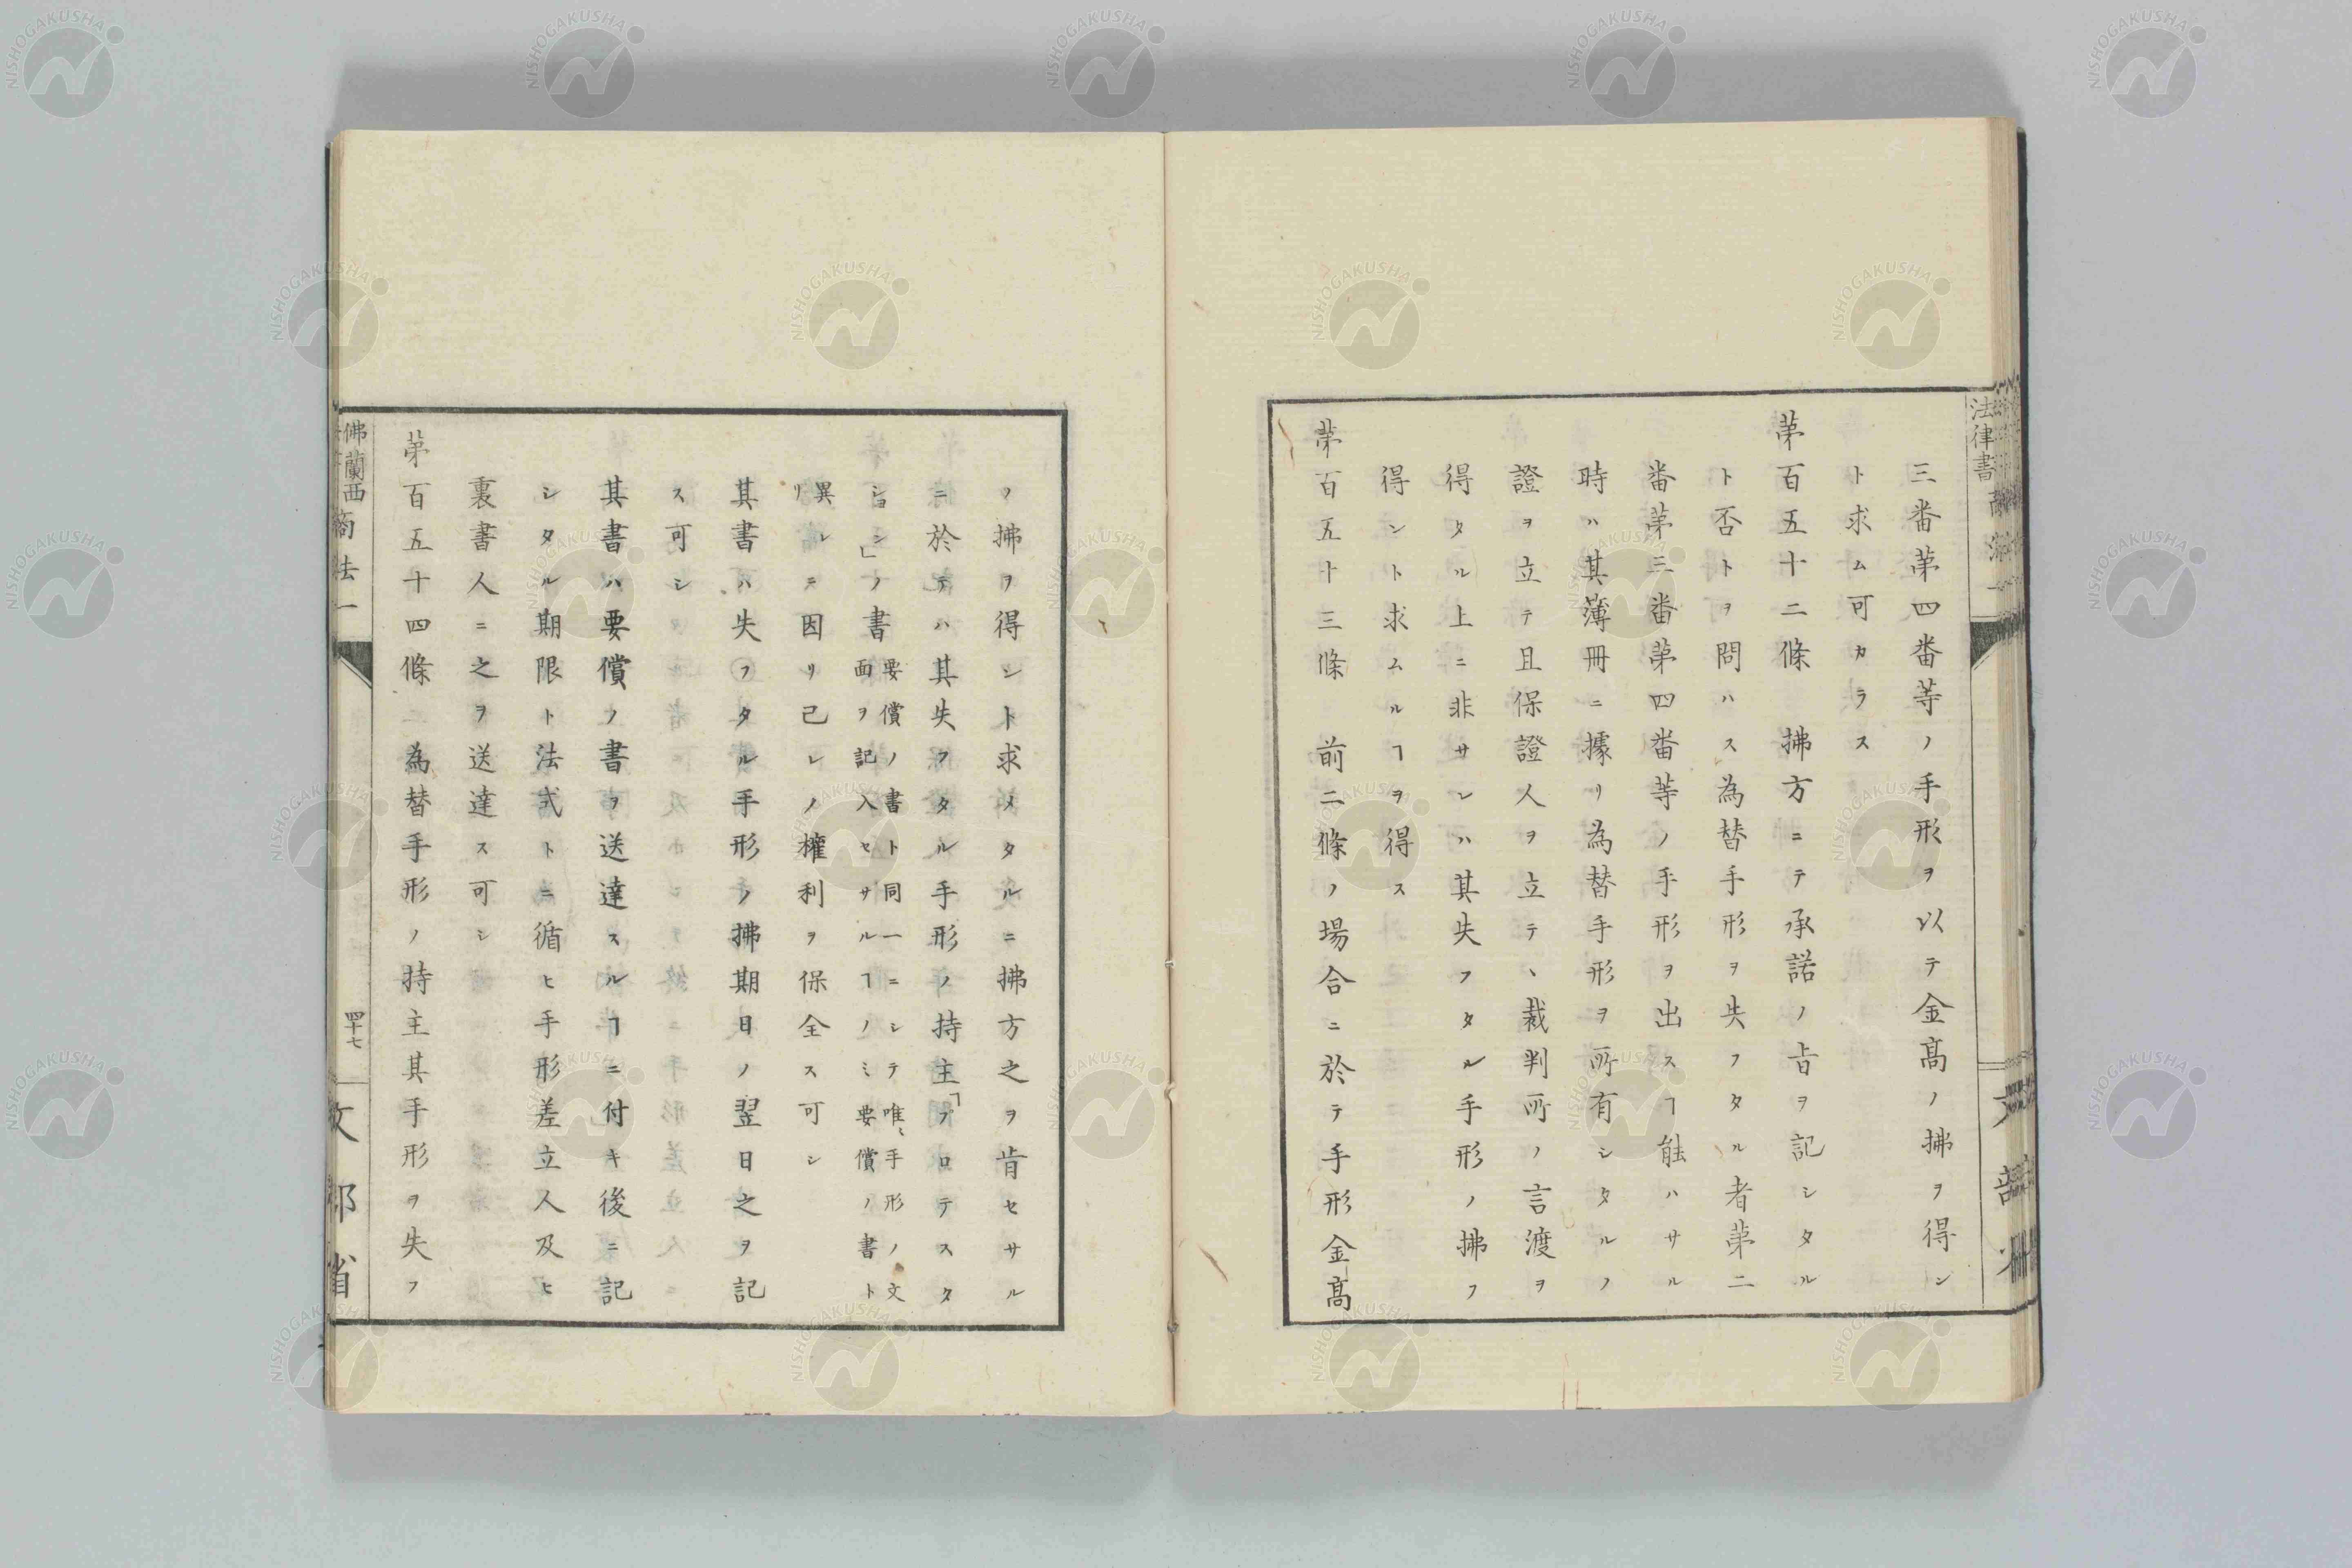 法律書
三番第四番等ノ手形ヲ以テ金高ノ拂ヲ得ン
ト求ム可カラス
第百五十二條　拂方ニテ承諾ノ旨ヲ記シタル
ト否トヲ問ハス為替手形ヲ失フタル者第二
番第三番第四番等ノ手形ヲ出スヿ能ハサル
時ハ其薄冊ニ據リ為替手形ヲ所有シタルノ
證ヲ立テ且保證人ヲ立テヽ裁判所ノ言渡ヲ
得タル上ニ非サレハ其失フタル手形ノ拂フ
得ント求ムルヿヲ得ス
第百五十三條　前二條ノ場合ニ於テ手形金高
ノ拂ヲ得ント求メタルニ拂方之ヲ肯セサル
ニ於テハ其失フタル手形ノ持主「プロテスタ
ションシ」ノ書
要償ノ書ト同一ニシテ唯〻手形ノ文
面ヲ記入セサルヿノミ要償ノ書ト
異レ
リ
ニ因リ己レノ權利ヲ保全ス可シ
其書ハ失フタル手形ノ拂期日ノ翌日之ヲ記
ス可シ
其書ハ要償ノ書ヲ送達スルヿニ付キ後ニ記
シタル期限ト法式トニ循ヒ手形差立人及ヒ
裏書人ニ之ヲ送達ス可シ
第百五十四條　為替手形ノ持主其手形ヲ失フ
佛蘭西商法一
四十七
文部省
NISHOGAKUSHA